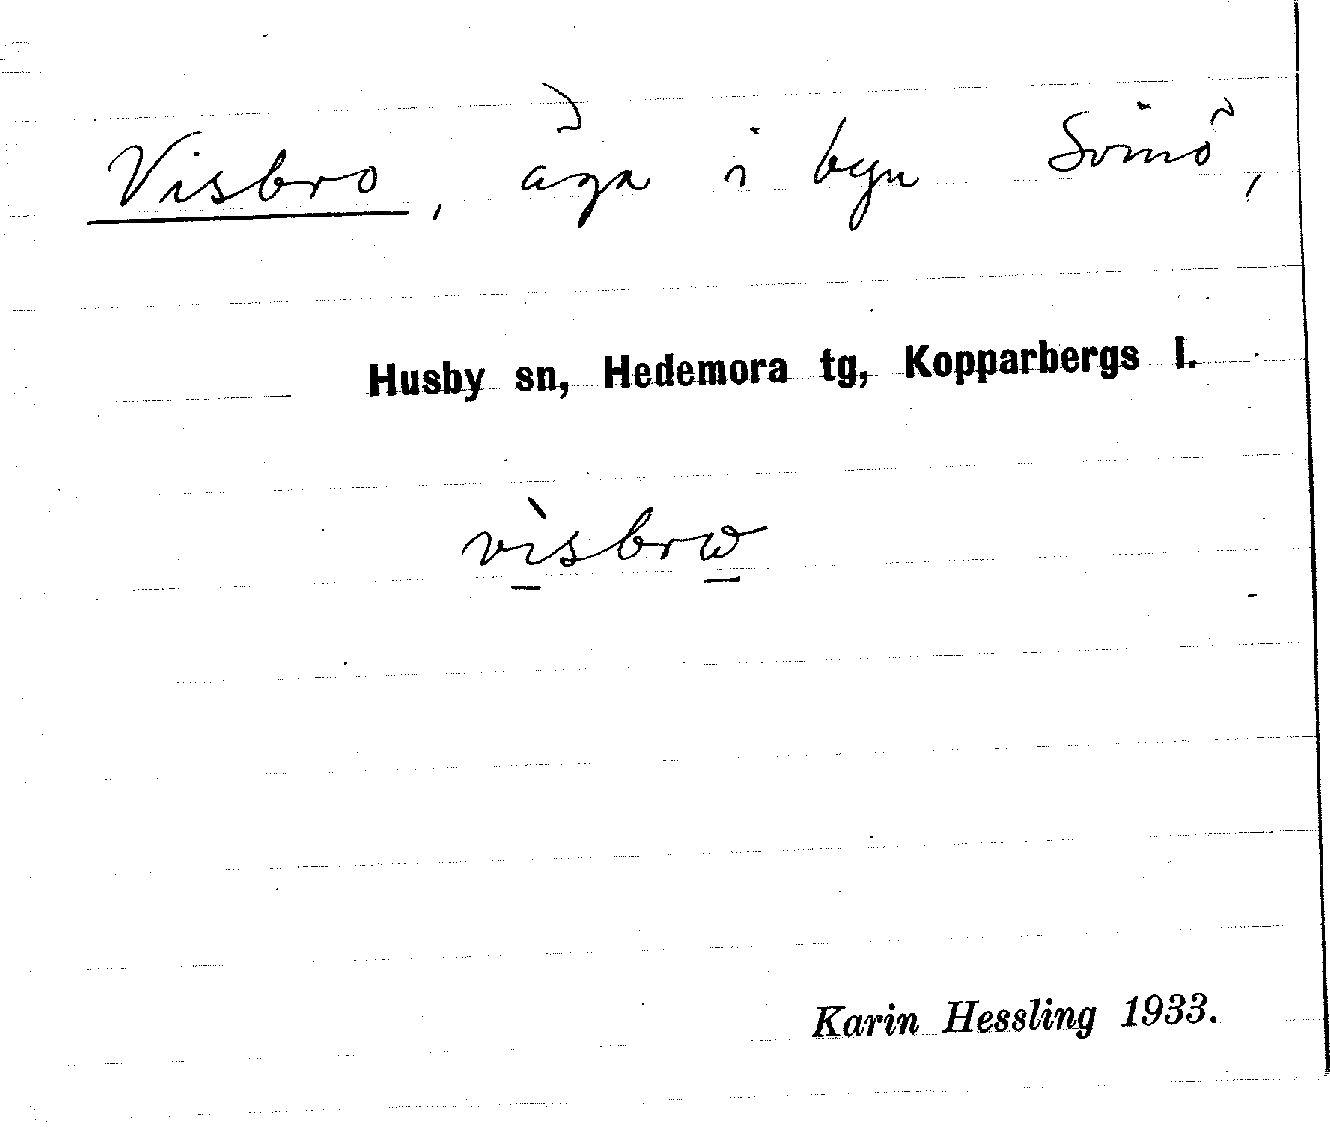 Visbro, äga i byn Svinö,
Husby sn, Hedemora tg, Kopparbergs l.
vì̠sbrω̠
Karin Hessling 1933.